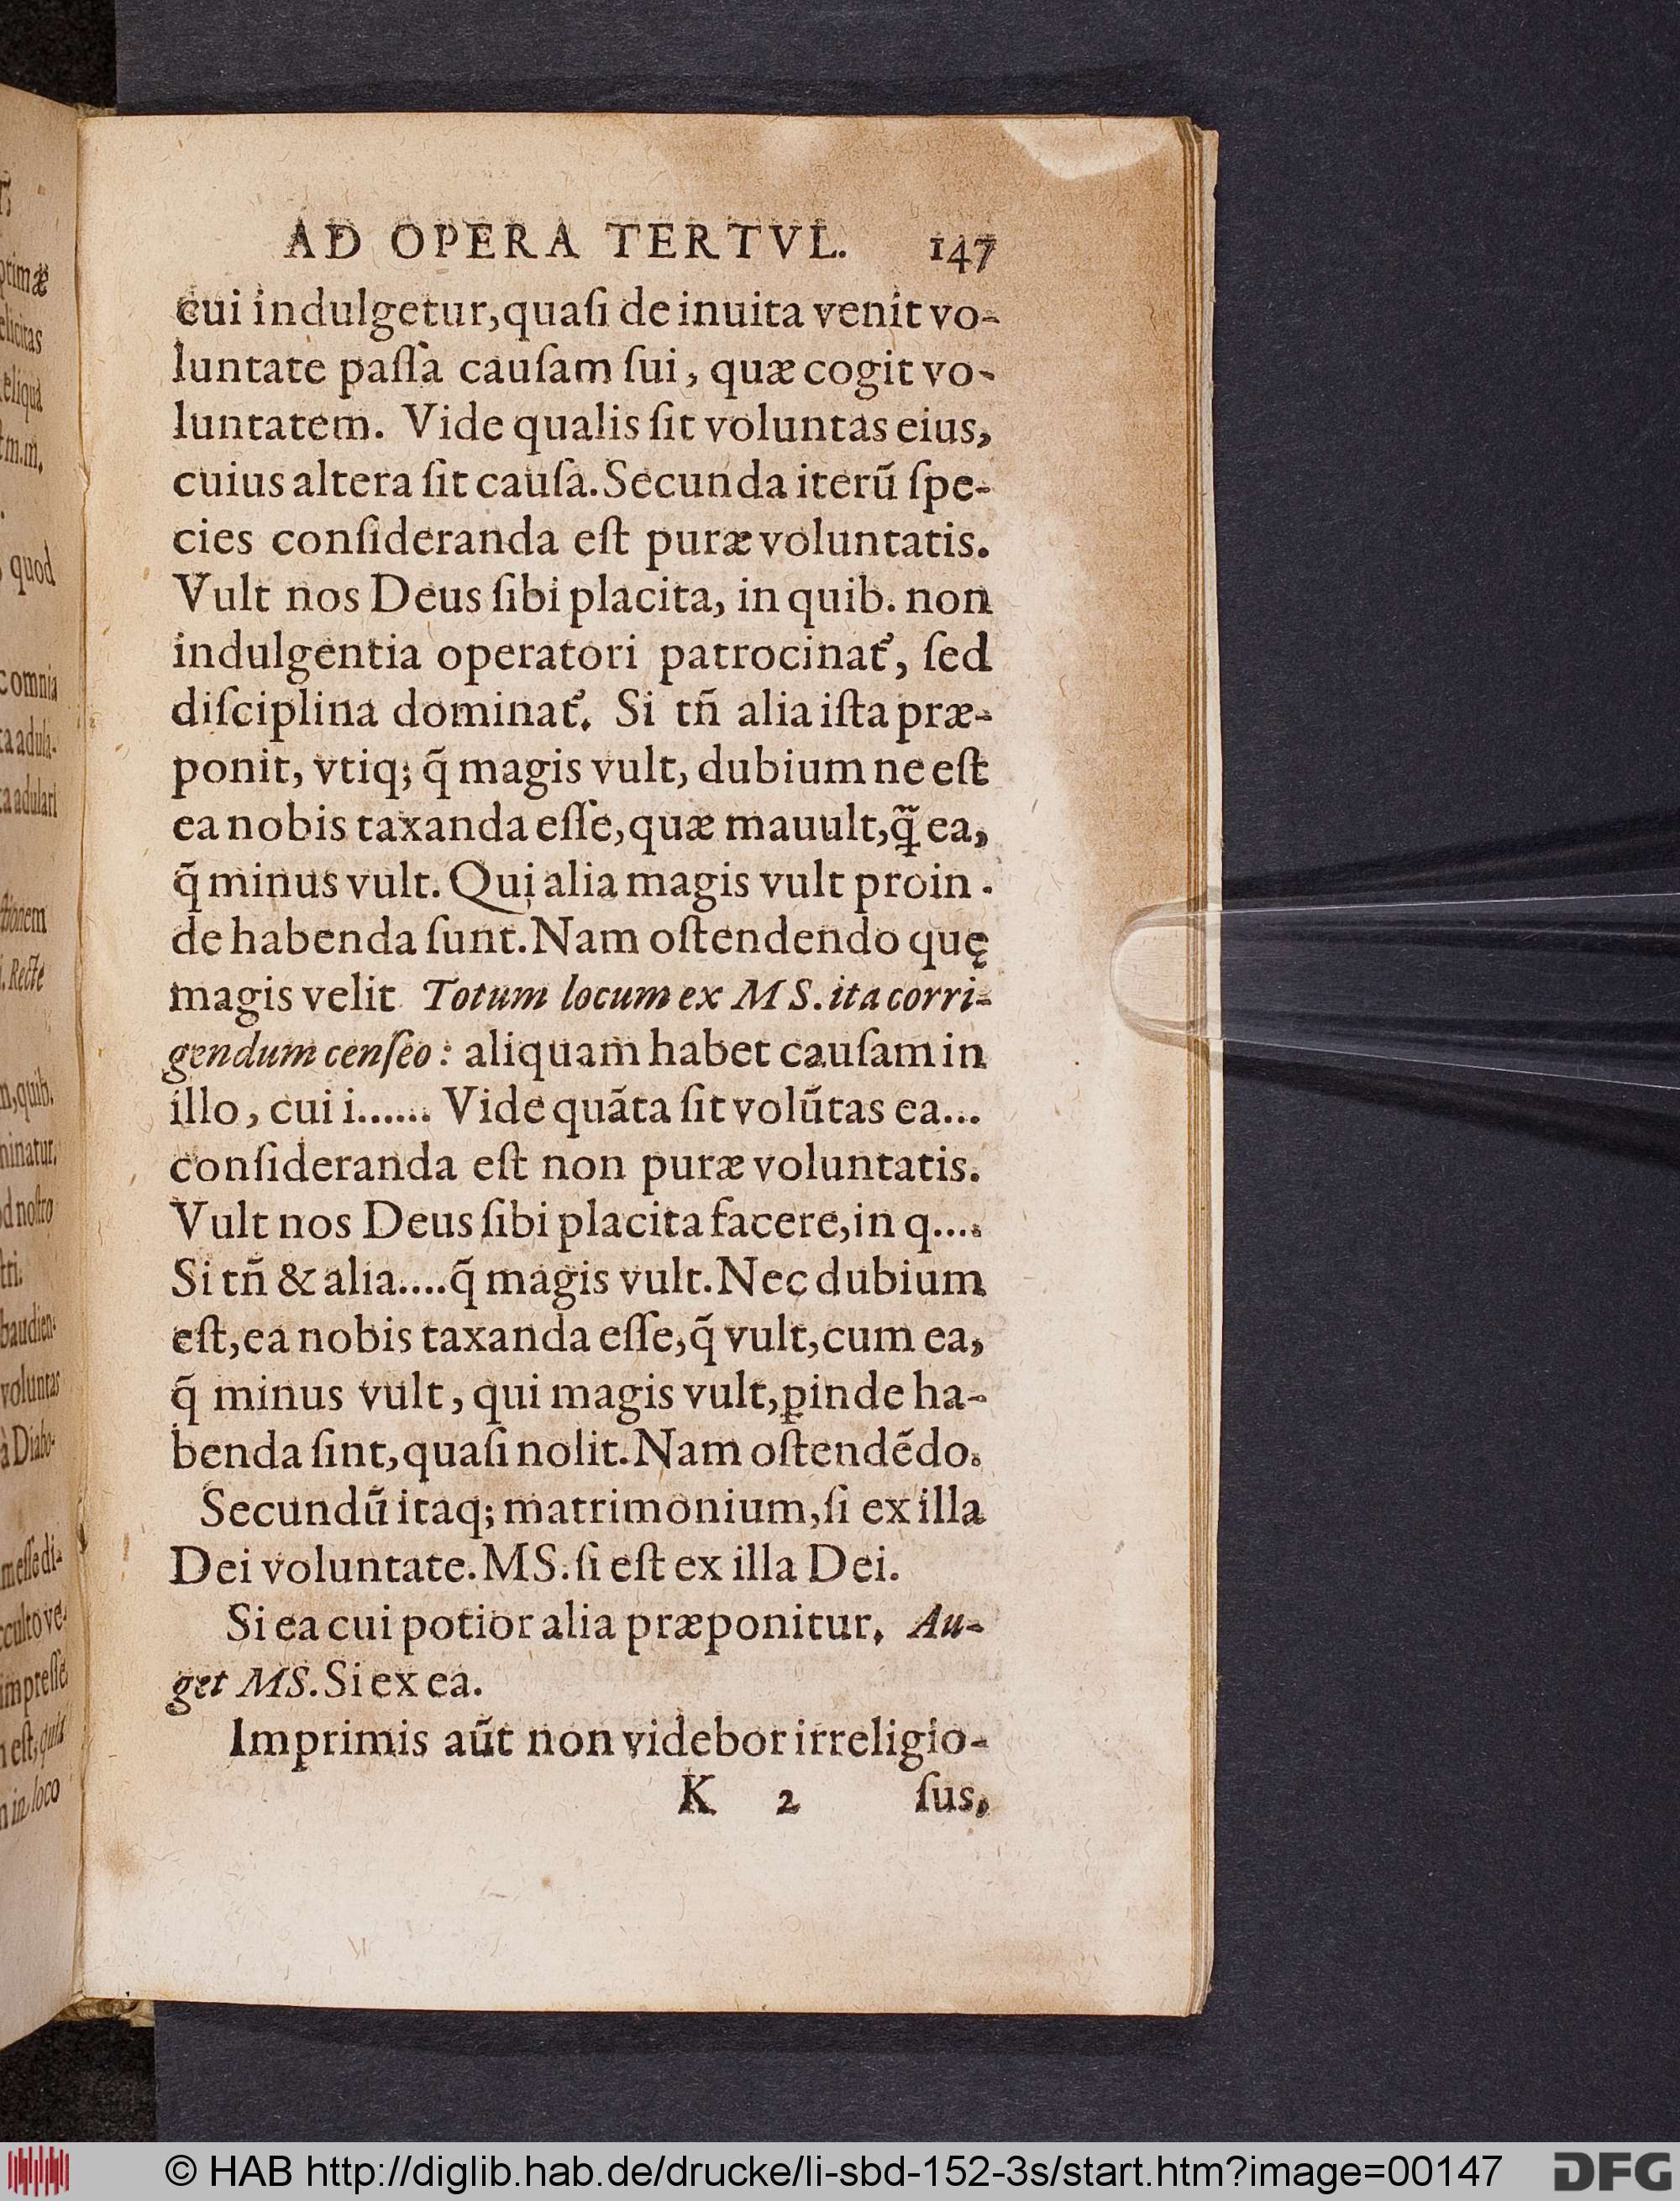 AD OPERA TERTVL. 147
cui indulgetur, quaſi de inuita venit vo-
luntate paſſa cauſam ſui, quæ cogit vo-
luntatem. Vide qualis ſit voluntas eius,
cuius altera ſit cauſa. Secunda iterũ ſpe-
cies conſideranda eſt puræ voluntatis.
Vult nos Deus ſibi placita, in quib. non
indulgentia operatori patrocinat᷑, ſed
diſciplina dominat᷑. Si tñ alia iſta præ-
ponit, vtiq; q̃ magis vult, dubium ne eſt
ea nobis taxanda eſſe, quæ mauult, ꝗ̃ ea,
q̃ minus vult. Qui alia magis vult proin-
de habenda ſunt. Nam oſtendendo quę
magis velit Totum locum ex MS. ita corri-
gendum cenſeo: aliquam habet cauſam in
illo, cui i...... Vide quãta ſit volũtas ea...
conſideranda eſt non puræ voluntatis.
Vult nos Deus ſibi placita facere, in q....
Si tñ & alia....q̃ magis vult. Nec dubium
eſt, ea nobis taxanda eſſe, q̃ vult, cum ea,
q̃ minus vult, qui magis vult, ꝓinde ha-
benda ſint, quaſi nolit. Nam oſtendẽdo.
Secundũ itaq; matrimonium, ſi ex illa
Dei voluntate. MS. ſi eſt ex illa Dei.
Si ea cui potior alia præponitur, Au-
get MS. Si ex ea.
Imprimis aũt non videbor irreligio-
K 2 ſus,
© HAB http://diglib.hab.de/drucke/li-sbd-152-3s/start.htm?image=00147 DFG